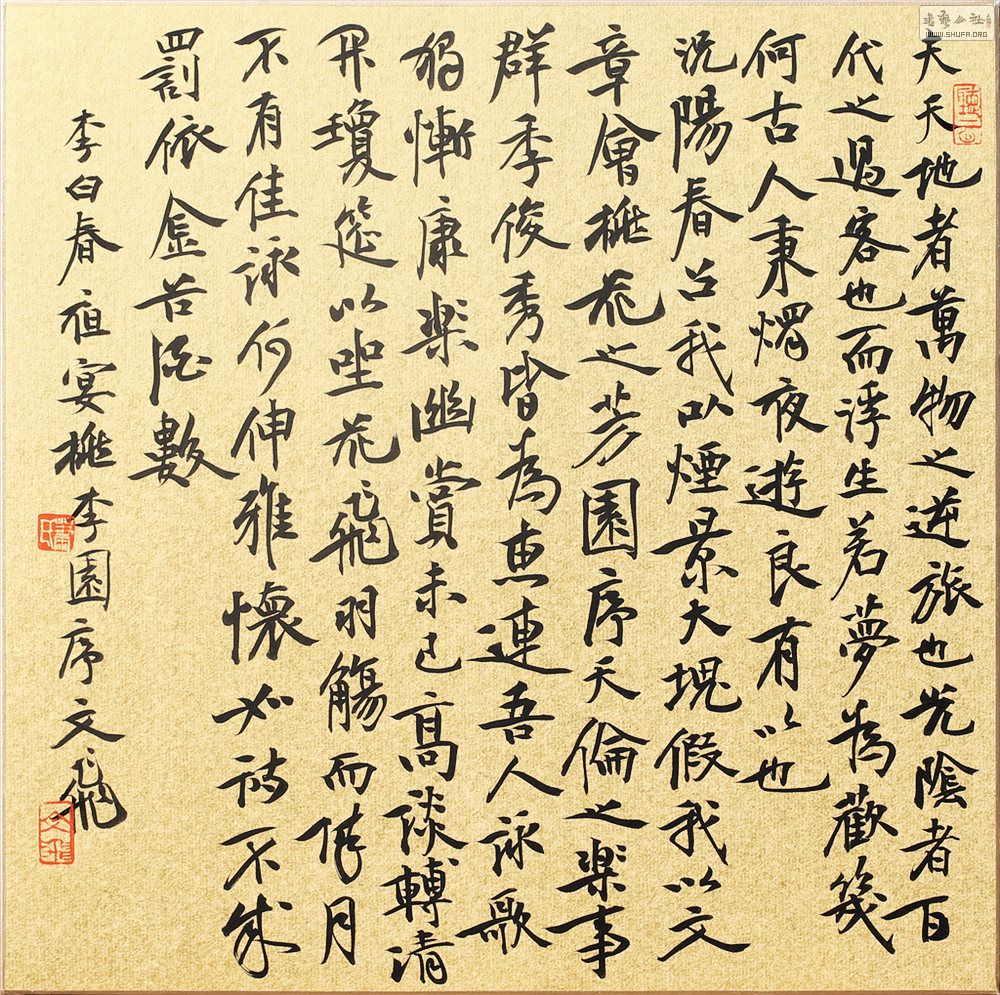 夫天地者萬物之逆旅也光陰者百
代之過客也而浮生若夢為歡幾
何古人秉燭夜遊良有以也
況陽春召我以煙景大塊假我以文
章會桃花之芳園序天倫之楽事
群季俊秀皆為惠連吾人詠歌
獨慚康楽幽賞未已高談轉清
開瓊筵以坐花飛羽觴而醉月
不有佳詠何伸雅懷如詩不成
罰依金谷酒數
李白春夜宴桃李園序文飛
文飛
書藝公社
WWW.SHUFA.ORG